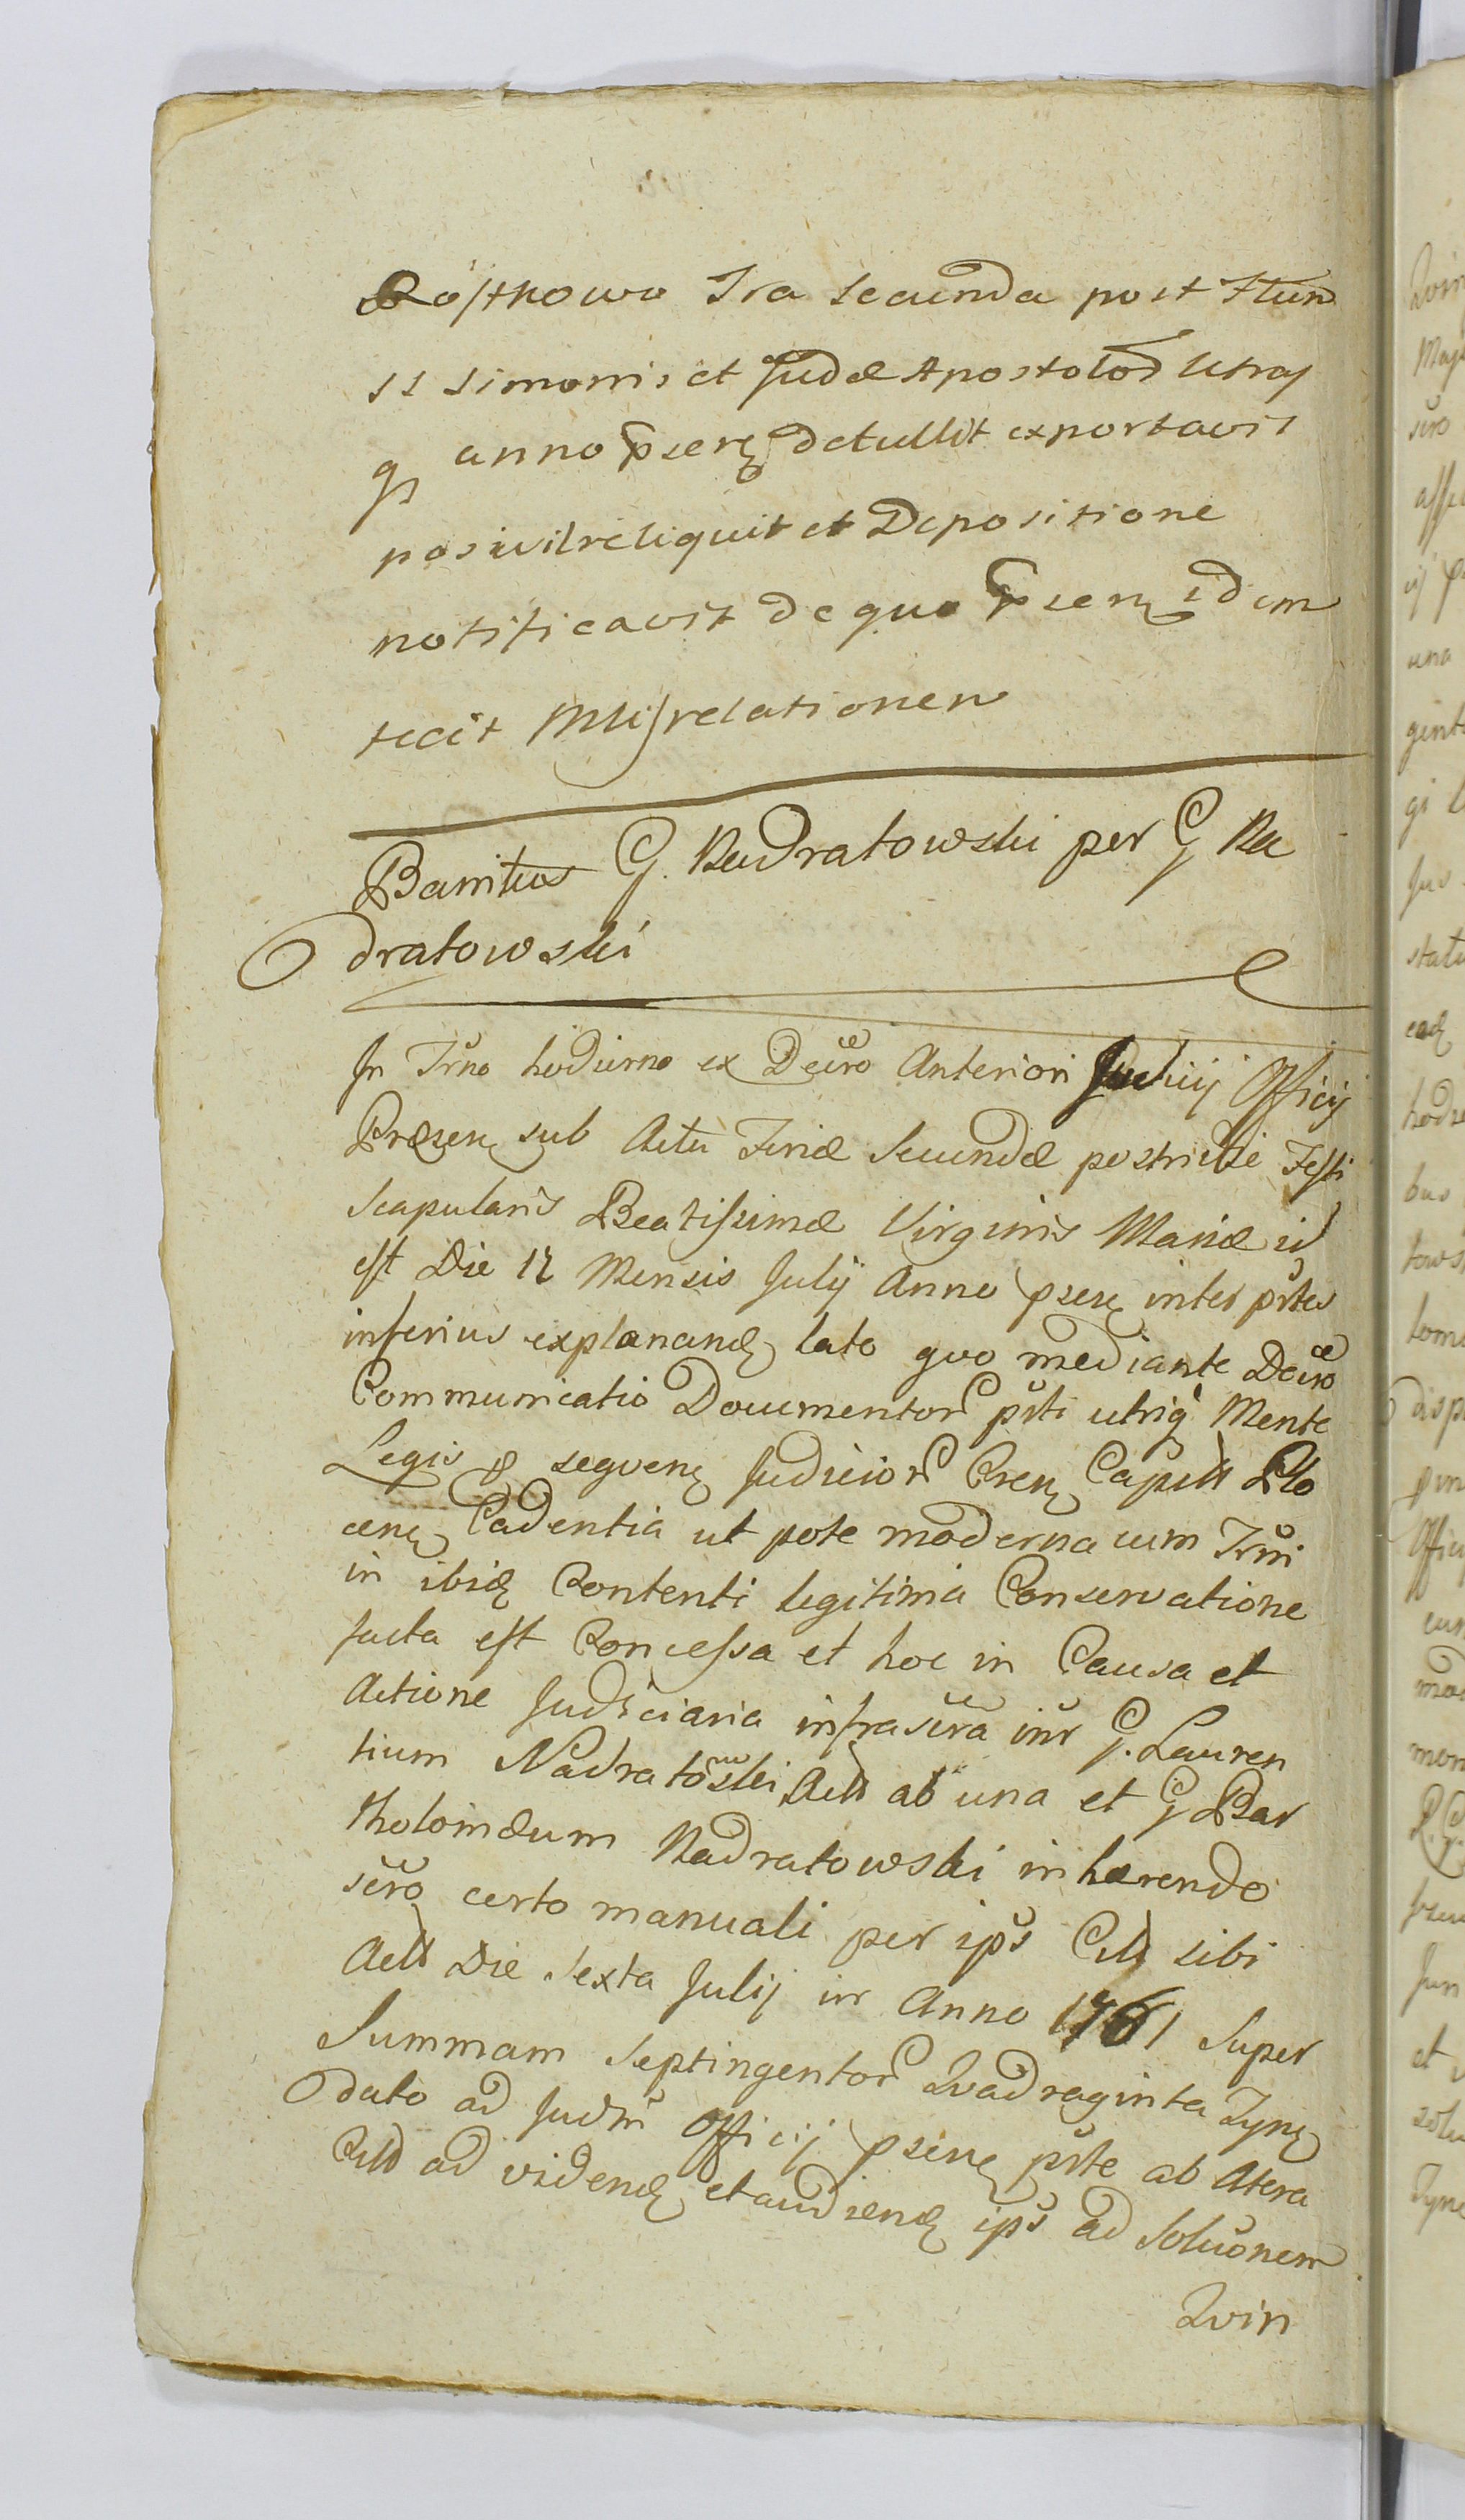 Rostkowo Fra secunda post Ftum
SS Simonis et Judæ Apostolor Utraq
gs anno pserq detullit exportavit
posuit reliquit et Depositione
notificavit de quo psenq idem
fecit Mlis relationem
Banitus G. Nadratowski per G Na
dratowski
In Trno hodierno ex Decro Anteriori Judicij Officij
Præsenq sub Actu Feriæ Secundæ postridie Festi
Scapularis Beatissimæ Virginis Mariæ id
est Die 17 Mensis Julij Anno psenq inter prtes
inferius explanandq lato quo mediante Decro
Communicatio Documentor prti utriq Mente
Legis p sequenq Judicior Crenq Capitt Plo
cenq Cadentia ut pote moderna cum Trni
in ibidq Contenti legitima Conservatione
facta est Concessa et hoc in Causa et
Actione Judiciaria infrascra inr G. Lauren
tium Nadratowski Actt ab una et G Bar
tholomæum Nadratowski inhærendo
scro certo manuali per ips Citt sibi
Actt Die Sexta Julij in Anno 1761 Super
Summam Septingentor Qvadraginta Tynq
dato ad Judm Officij psenq prte ab Altera
Citt ad videndq et audiendq ips ad Soluonem
Qvin